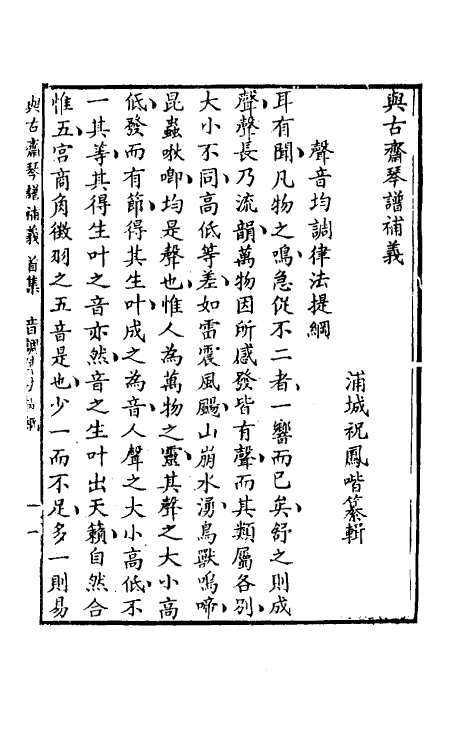 與古齋琴譜補義
浦城祝鳳喈纂輯
聲音均調律法提綱
耳有聞凡物之鳴急促不二者一響而已矣舒之則成
聲聲長乃流韻萬物因所感發皆有聲而其類屬各別
大小不同高低等差如雷震風颺山崩水湧鳥獸鳴啼
昆蟲啾唧均是聲也惟人為萬物之靈其聲之大小高
低發而有節得其生叶成之為音人聲之大小高低不
一其等其得生叶之音亦然音之生叶出天籟自然合
惟五宮商角徵羽之五音是也少一而不足多一則易
與古齋琴譜補義 首集 音調